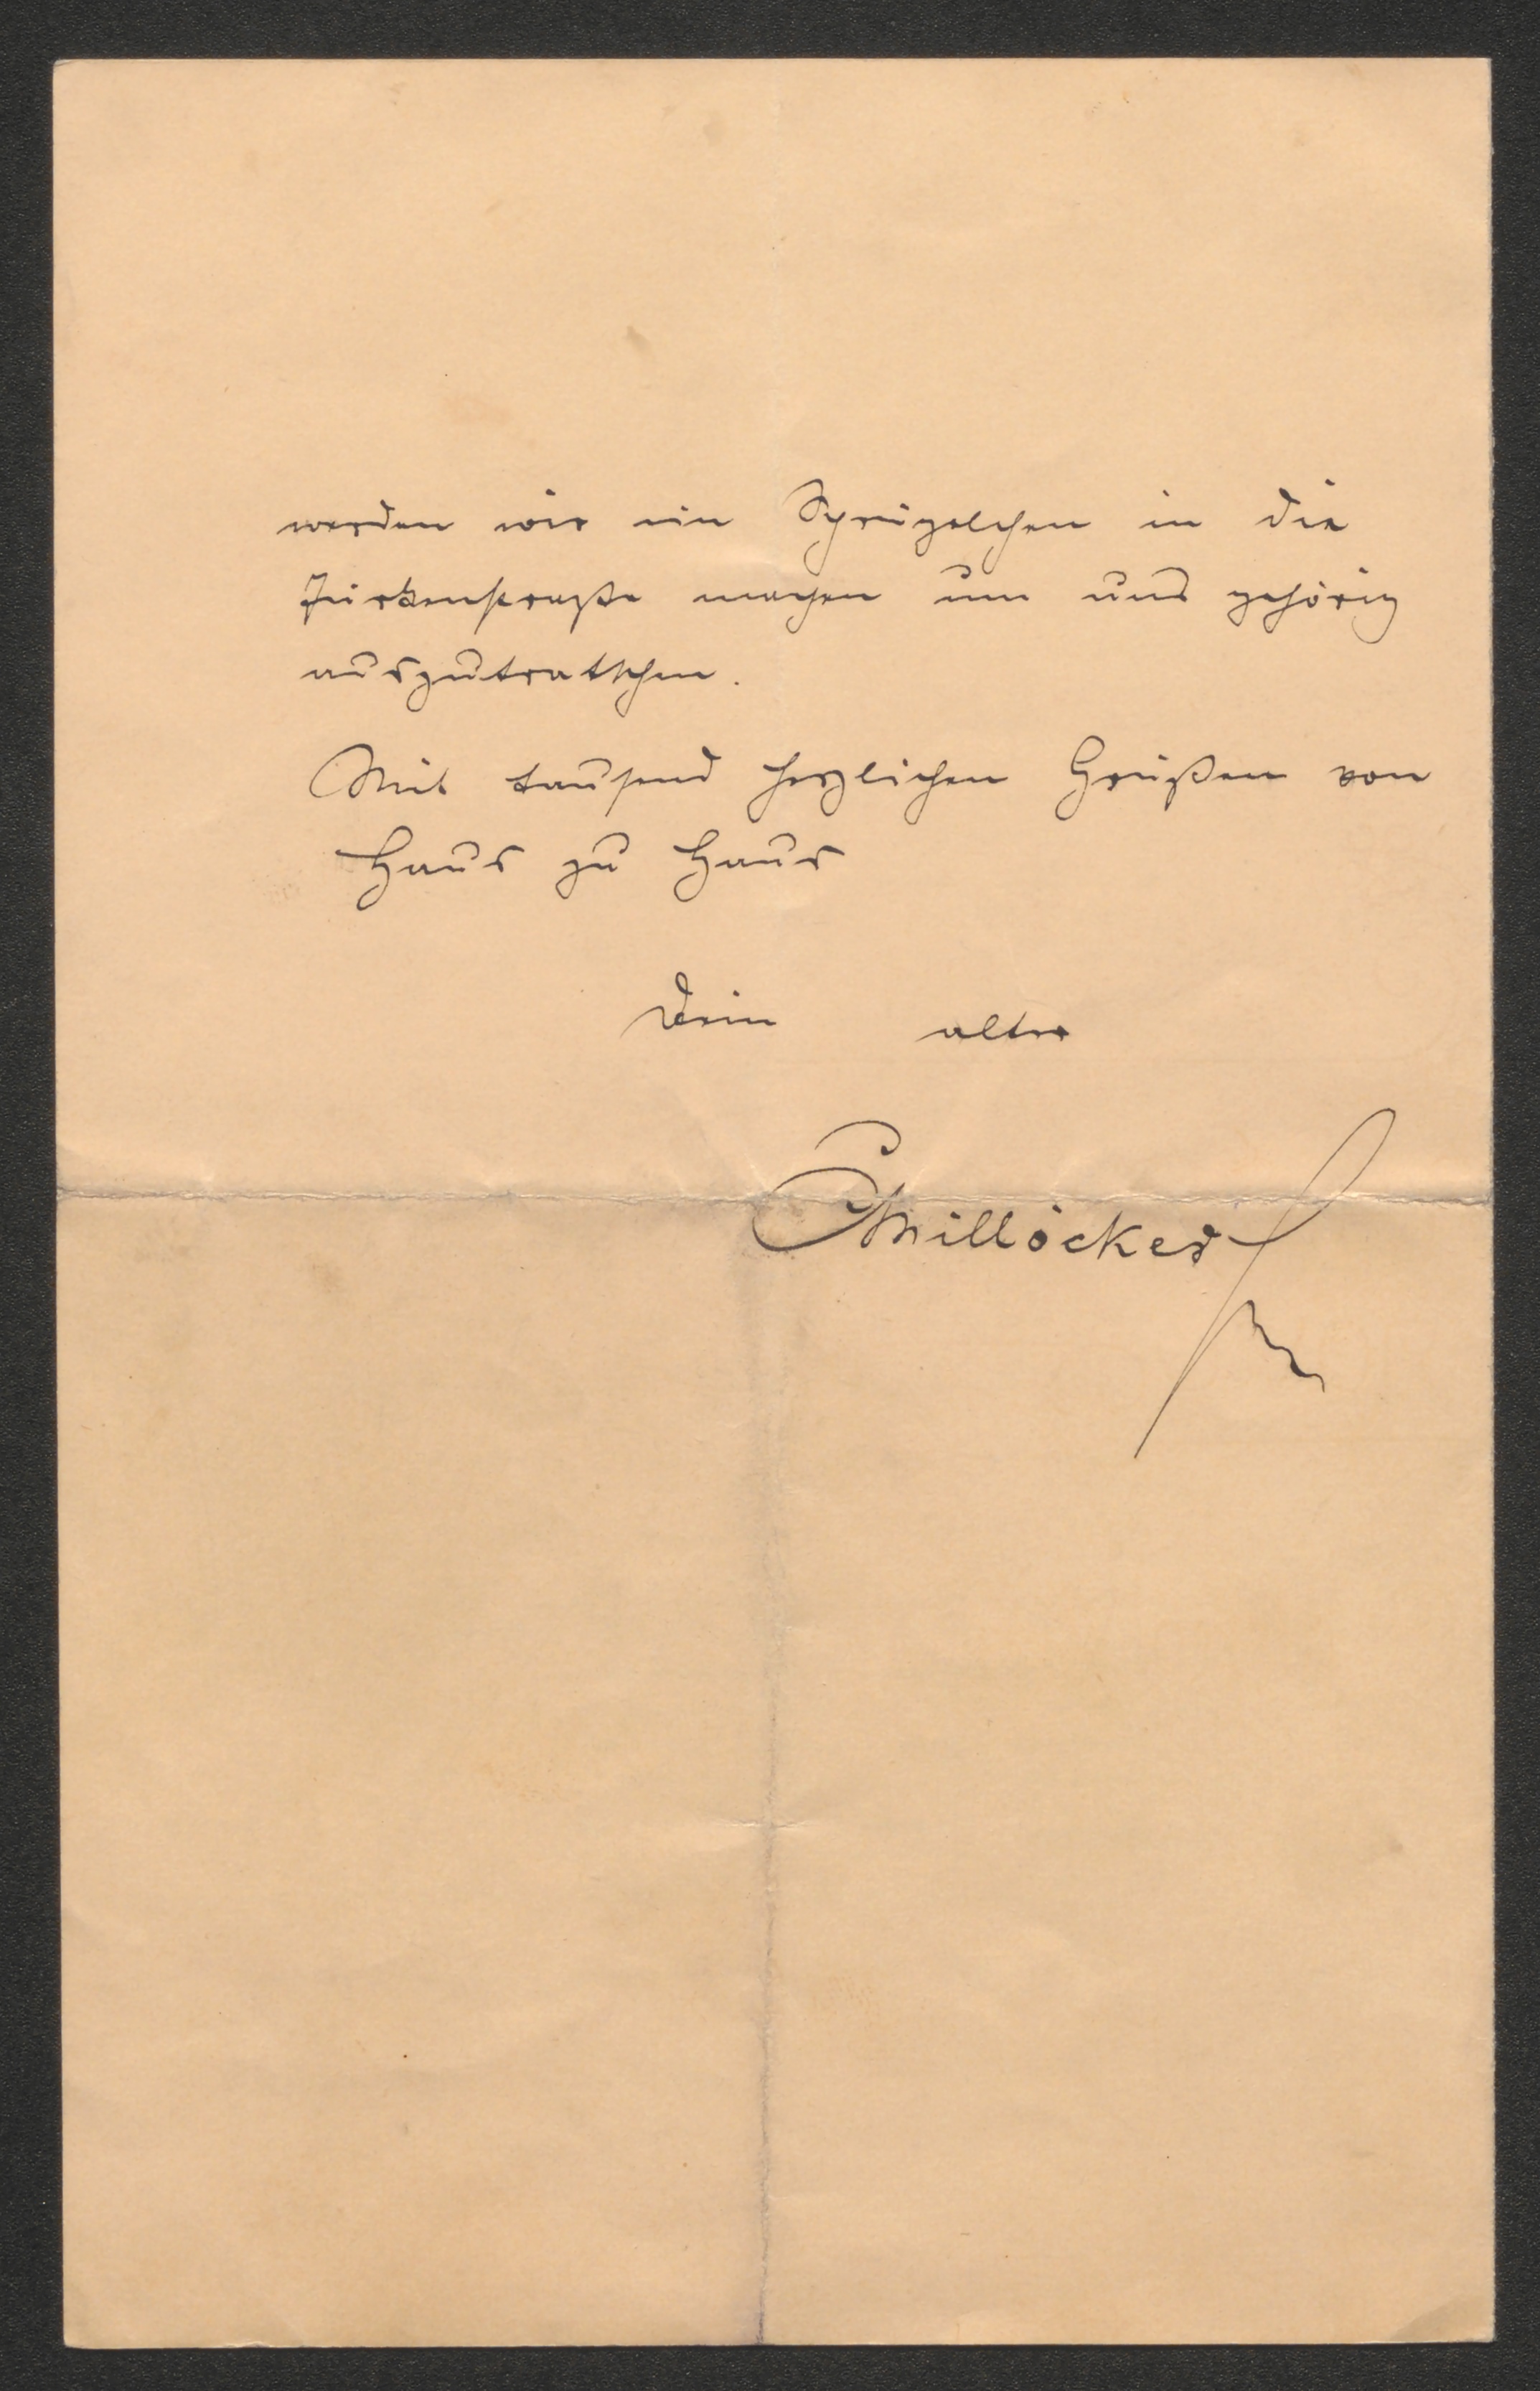 werden wir ein in die
Türkenstraße machen um uns gehörig
auszutratschen.
Mit tausend herzlichen Grüßen von
Haus zu Haus
Dein alter
CMillöcker